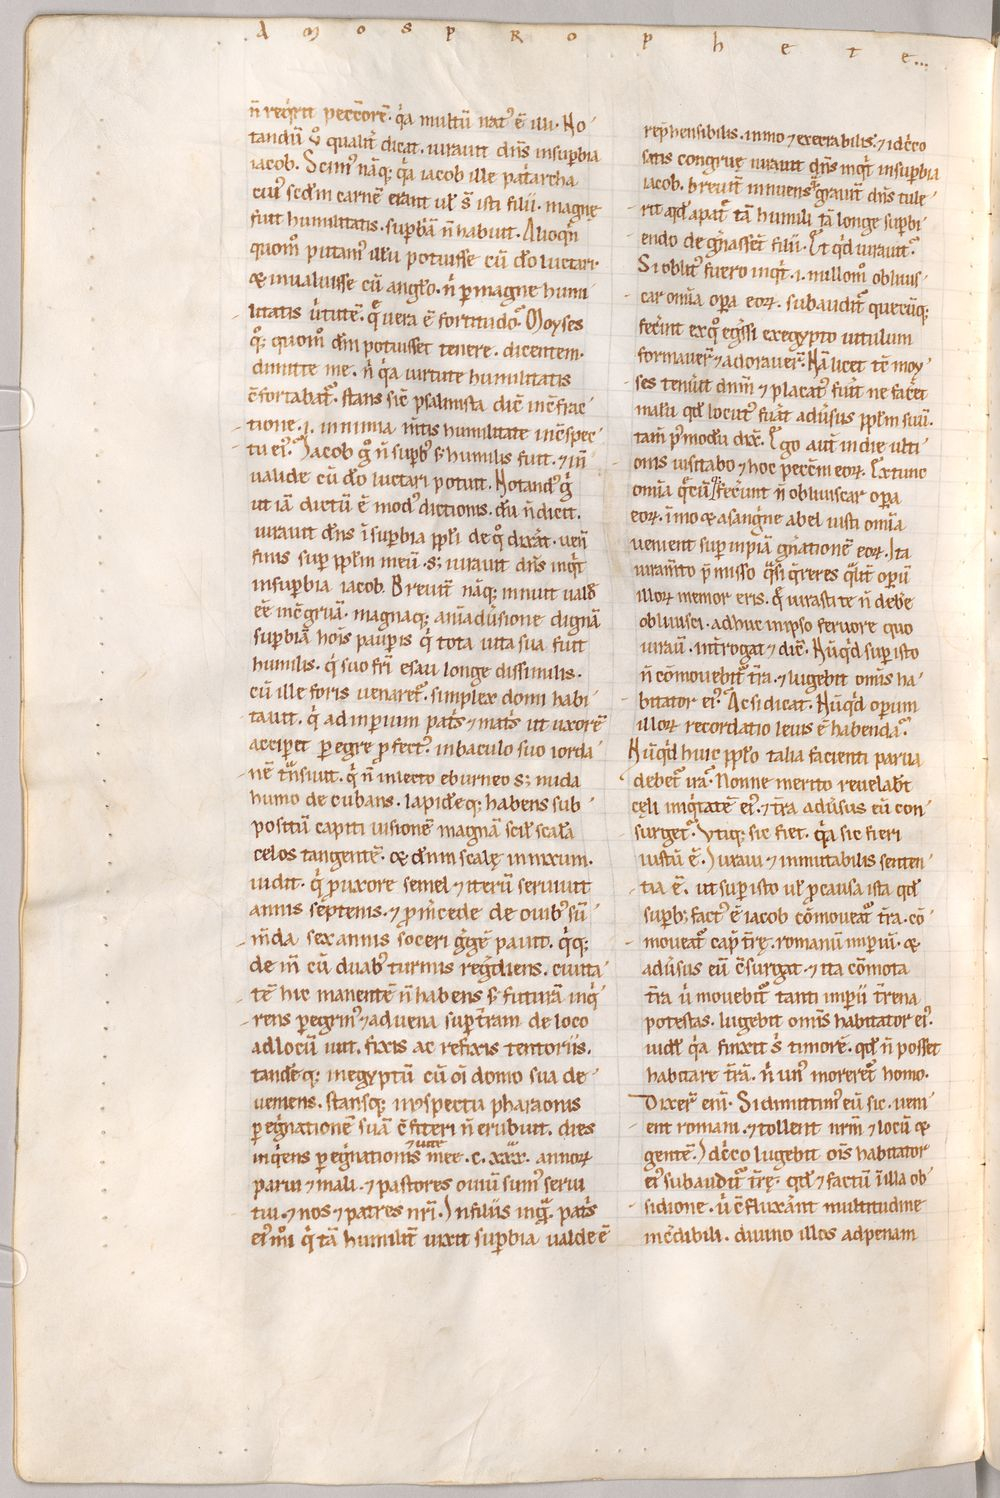 A m o s p R o p h e t e...
n̄ reqͥrit pecc̄orē. qͥa multū nat᷒ ē illi. No
tandū ꝟo qualit᷑ dicat. iurauit dn̄s insuꝑbia
iacob. Scim᷒ nāq; qͥa iacob ille pat͛archa
cui᷒ scd̄m carnē erant ul̄ s̄ isti filii. magnę
fuit humilitatis. suꝑbiā n̄ habuit. Alioqn̄
quom̊ putam᷒ illū potuisse cū dō luctari.
& inualuisse cū angl̄o. nͥ ꝑ magnę humi
litatis u͛tutē. qͤ uera ē fortitudo. Moyses
q̊; quom̊ dn̄m potuisset tenere. dicentem.
dimitte me. nͥ qͥa uirtute humilitatis
c̄fortabat᷑. stans sic̄ psalmista dic̄ inc̄frac
tione .i. in nimia m̄tis humilitate inc̄spec
tu ei᷒. Iacob g̊ n̄ suꝑb᷒ s; humilis fuit. ⁊ in̄
ualide cū dō luctari potuit. Notand᷒ g̊
ut iā dictū ē mod᷒ dictionis. dū n̄ dicit.
iurauit dn̄s ī suꝑbia ppl̄i de q̊ dixāt. uen̄
finis suꝑ ppl̄m meū. s; iurauit dn̄s inqͥt
insuꝑbia iacob. Breuit᷑ nāq; innuit uald̄
ēē inc̄gruā. magnaq; aīadu͛sione dignā
suꝑbiā hoīs pauꝑis qͥ tota uita sua fuit
humilis. qͥ suo fr̄i esau longe dissimilis.
cū ille foris uenaret᷑. simplex domi habi
tauit. qͥ ad imꝑium pat͛s ⁊ mat͛s ut uxorē
acciꝑet ꝑegre ꝓfect᷒. inbaculo suo iorda
nē tn̄siuit. qͥ n̄ inlecto eburneo s; nuda
humo decubans. lapidēq; habens sub
positū capiti uisionē magnā scil̄ scalā
celos tangentē. & dn̄m scalę innixum.
uidit. qͥ ꝓ uxore semel ⁊ iterū seruiuit
annis septenis. ⁊ ꝓ m͛cede de ouib᷒ sū
m͛da sex annis soceri gͤgē pauit. qͥq;
de in̄ cū duab᷒ turmis regͤdiens. ciuita
tē hic manentē n̄ habens s; futurā inqͥ
rens ꝑegrin᷒ ⁊ aduena suꝑ t͛ram de loco
ad locū iuit. fixis ac refixis tentoriis.
tandēq; inegyptū cū oī domo sua de
ueniens. stansq; in ꝯspectu pharaonis
ꝑegͥnationē suā c̄fiteri n̄ erubuit. dies
inqͥens ꝑegͥnationis ⁊ uitę meę .c.xxx. annoꝝ
parui ⁊ mali. ⁊ pastores ouiū sum᷒ serui
tui. ⁊ nos ⁊ patres nr̄i. In filiis ing͛. pat͛s
ei᷒m̊i qͥ tā humilit᷑ uixit suꝑbia ualde ē
rep̄hensibilis. immo ⁊ execrabilis. ⁊ idc̄co
satis congruę iurauit dn̄s inqͥt insuꝑbia
iacob. breuit᷑ innuens qͣ grauit᷑ dn̄s tule
rit qd̄ apat͛ tā humili tā longe suꝑbi
endo deg͛nassēt filii. Et qd̄ iurauit᷒
Si oblit᷒ fuero inqͥt .i. nullom̊ obliuis
car om̄ia oꝑa eoꝝ. subaudit᷑ quecūq;
fec͛int exq̊ egͥssi exegypto uitulum
formauer̄ ⁊ adorauer̄. Nā licet tē moy
ses tenu͛it dn̄m ⁊ placat᷒ fu͛it ne fac͛et
malū qd̄ locut᷒ fu͛at adu͛sus ppl̄m suū.
tam̄ p᷒modū dix̄. Ego aut̄ in die ulti
onis uisitabo ⁊ hoc pecc̄m eoꝝ. Extunc
om̄ia qͤcūq; fec͛unt n̄ obliuiscar oꝑa
eoꝝ. īmo & asangͥne abel iusti om̄ia
uenient suꝑ impiā gn̄ationē eoꝝ. Ita
iuram̄to p̄misso qͣsi qͥreres qͣlit᷑ oꝑū
illoꝝ memor eris. qͤ iurasti te n̄ debe͛
obliuisci. adhuc in ipso feruore quo
iurau͛. int͛rogat ⁊ dic̄. Nūqͥd suꝑ isto
n̄ cōmouebit᷑ t͛ra. ⁊ lugebit om̄is ha
bitator ei᷒. Ac si dicat. Nūqͥd oꝑum
illoꝝ recordatio leuis ē habenda.
Nūqͥd huic ppl̄o talia facienti parua
debet᷑ ira. Nonne merito reuelabt̄
cęli iniqͥtatē ei᷒. ⁊ t͛ra adu͛sus eū con
surget. Vtiq; sic fiet. qͥa sic fieri
iustū ē. Iuraui ⁊ inmutabilis senten
tia ē. ut suꝑ isto ul̄ ꝓ causa ista qd̄
suꝑb᷒ fact᷒ ē iacob cōmoueat᷑ t͛ra. cō
moueat᷑ cap᷒ t͛rę. romanū imꝑiū. &
adu͛sus eū c̄surgat. ⁊ ita cōmota
t͛ra u͛ mouebit᷑ tanti imꝑii t͛rena
potestas. lugebit om̄is habitator ei᷒.
uidel̄ qͥa finxit s̄ timorē. qd̄ n̄ posset
habitare t͛rā. nͥ un᷒ moreret᷑ homo.
Dixer̄ enī. Si dimittim᷒ eū sic. ueni
ent romani. ⁊ tollent nr̄m ⁊ locū &
gentē. Idc̄co lugebit oīs habitator
ei᷒ subaudit᷑ t͛rę. qd̄ ⁊ factū ī illa ob
sidione. u͛ c̄fluxānt multitudine
inc͛dibili. diuino illos adpenam